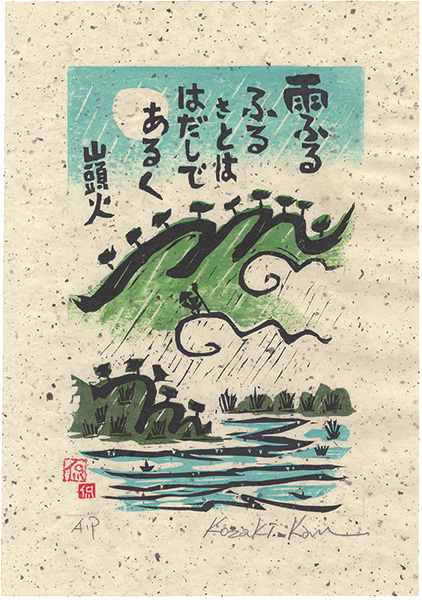 雨ふる
ふる
さとは
はだしで
あるく
山頭火
侃
侃
A.P
Kozaki Kan